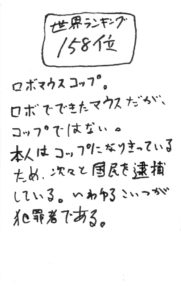 世界ランキング
158位
ロボマウスコップ。
ロボでできたマウスだが、
コップではない。
本人はコップになりきっている
ため、次々と国民を逮捕
している。いわゆるこいつが
犯罪者である。